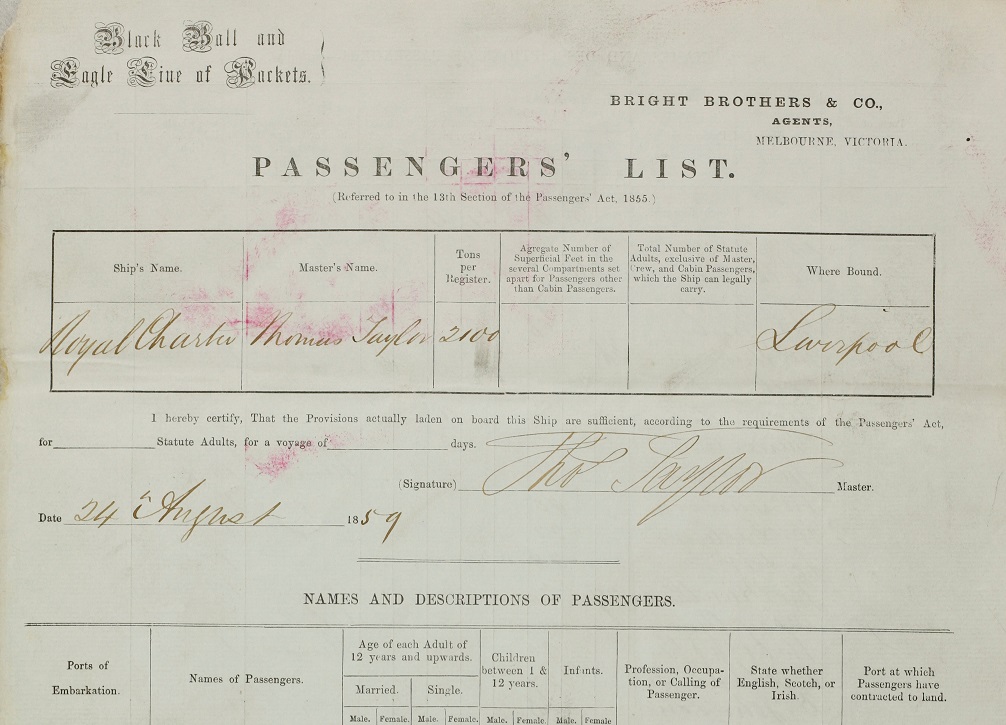 Black Ball and
Eagle Line of Packets.
BRIGHT BROTHERS & CO.,
AGENTS,
MELBOURNE, VICTORIA.
PASSENGERS' LIST.
(Referred to in the 13th Section of the Passengers' Act, 1855.)
Ship's Name.
Master's Name.
Tons
per
Register.
Agregate Number of
Superficial Feet in the
several Compartments set
apart for Passengers other
than Cabin Passengers.
Total Number of Statute
Adults, exclusive of Master,
Crew, and Cabin Passengers,
which the Ship can legally
carry.
Where Bound.
Royal Charter Thomas Taylor 2100 Liverpool
I hereby certify, That the Provisions actually laden on board this Ship are sufficient, according to the requirements of the Passengers' Act,
for Statute Adults, for a voyage of days.
(Signature) Thos Taylor Master.
Date 24th August 1859
NAMES AND DESCRIPTIONS OF PASSENGERS.
Ports of
Embarkation.
Names of Passengers.
Age of each Adult of
12 years and upwards.
Married. Single.
Male. Female. Male. Female.
Children
between 1 &
12 years.
Male. Female.
Infants.
Male. Female
Profession, Occupa-
tion, or Calling of
Passenger.
State whether
English, Scotch, or
Irish.
Port at which
Passengers have
contracted to land.